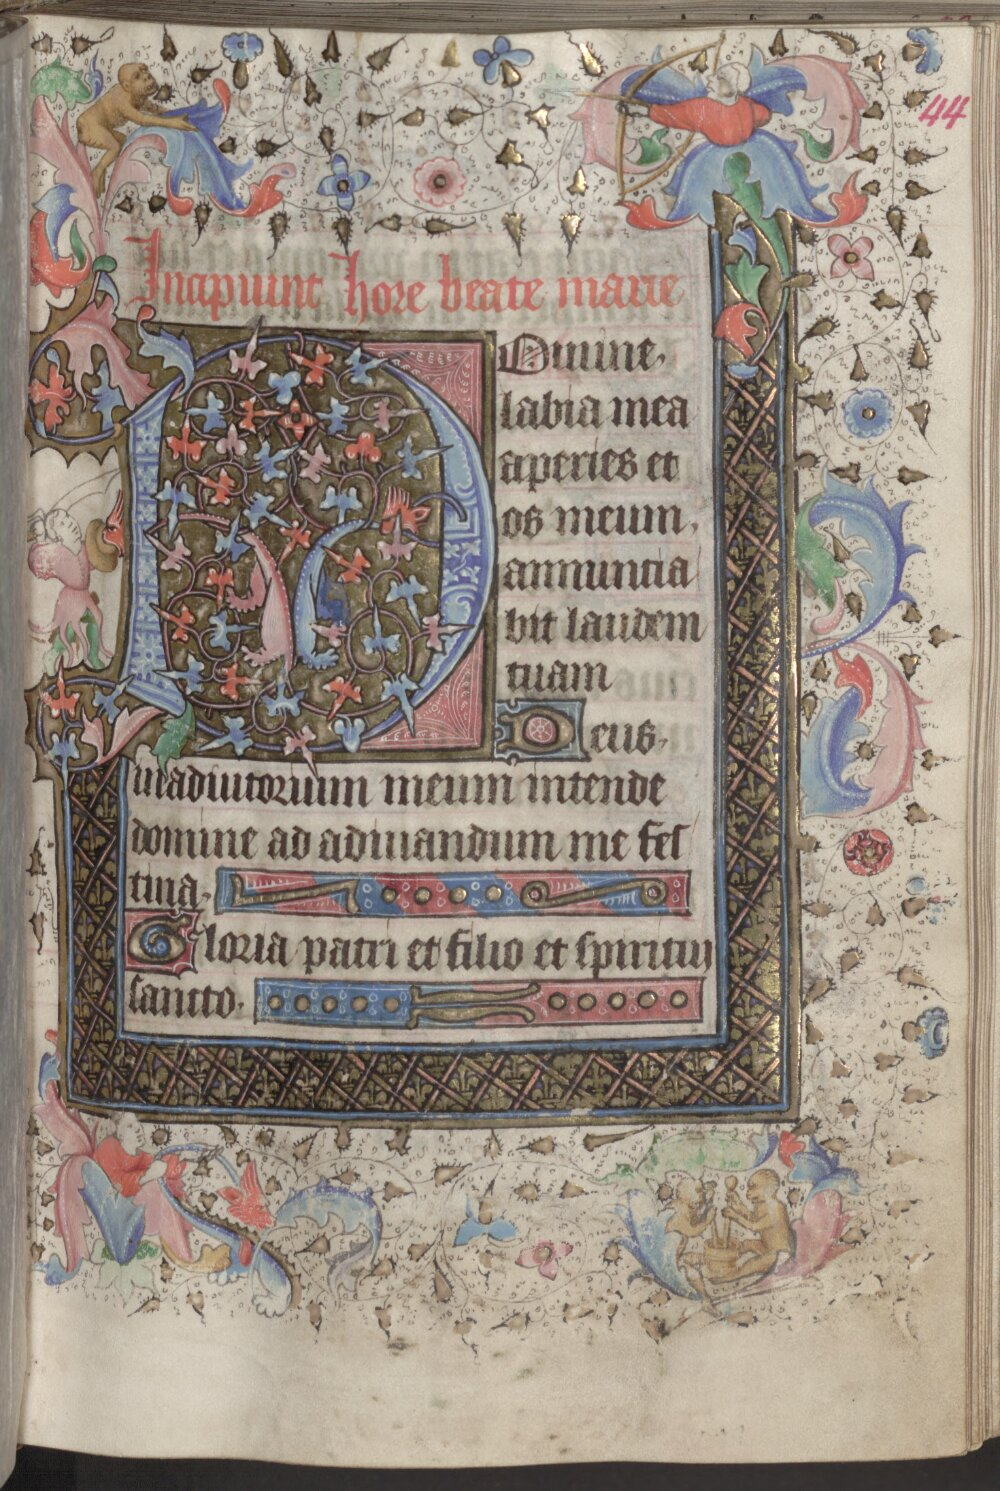 44
Incipiunt hore beate marie
Domine
labia mea
aperies et
os meum
annuncia
bit laudem
tuam
Deus
in adiutorium meum intende
domine ad adiuuandum me fes
tina.
Gloria patri et filio et spiritui
sancto.